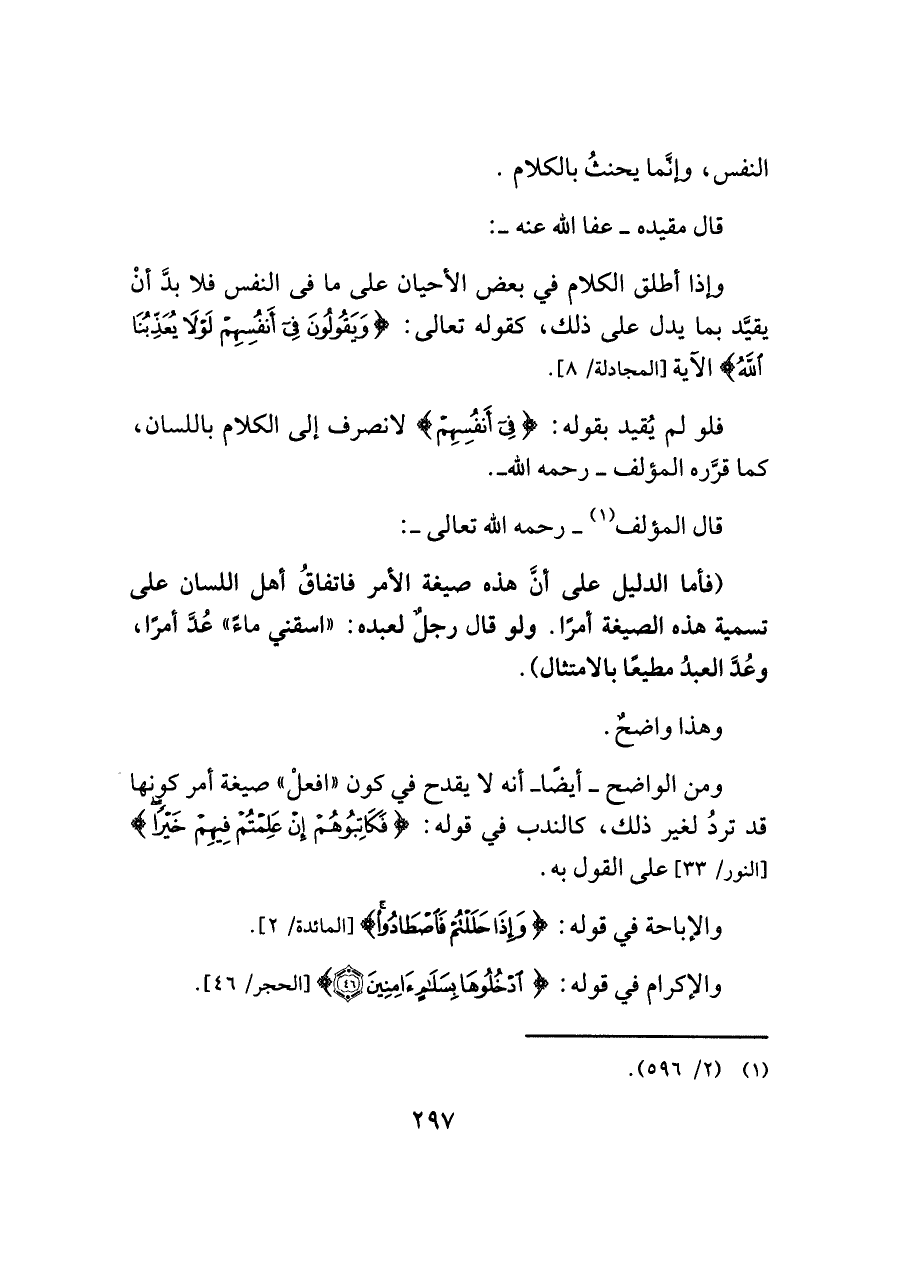 النفس، وإنَّما يحنثُ بالكلام .
قال مقيده ـ عفا الله عنه ـ:
وإذا أطلق الكلام في بعض الأحيان على ما فى النفس فلا بدَّ أنْ
يقيَّد بما يدل على ذلك، كقوله تعالى: ﴿وَيَقُولُونَ فِىٓ أَنفُسِهِمْ لَوْلَا يُعَذِّبُنَا
ٱللَّهُ﴾ الآية [المجادلة/ ٨].
فلو لم يُقيد بقوله: ﴿فِىٓ أَنفُسِهِمْ﴾ لانصرف إلى الكلام باللسان،
كما قرَّره المؤلف ـ رحمه اللهـ.
قال المؤلف(١) ـ رحمه الله تعالى ـ:
(فأما الدليل على أنَّ هذه صيغة الأمر فاتفاقُ أهل اللسان على
تسمية هذه الصيغة أمرًا. ولو قال رجلٌ لعبده: «اسقني ماءً» عُدَّ أمرًا،
وعُدَّ العبدُ مطيعًا بالامتثال).
وهذا واضحٌ.
ومن الواضح ـ أيضًاـ أنه لا يقدح في كون «افعلْ» صيغة أمر كونها
قد تردُ لغير ذلك، كالندب في قوله: ﴿فَكَاتِبُوهُمْ إِنْ عَلِمْتُمْ فِيهِمْ خَيْرًاۖ﴾
[النور/ ٣٣] على القول به.
والإباحة في قوله: ﴿وَإِذَا حَلَلْتُمْ فَٱصْطَادُوا۟ۚ﴾ [المائدة/ ٢].
والإكرام في قوله: ﴿ٱدْخُلُوهَا بِسَلَٰمٍ ءَامِنِينَ ٤٦﴾ [الحجر/ ٤٦].
(١) (٢/ ٥٩٦).
٢٩٧